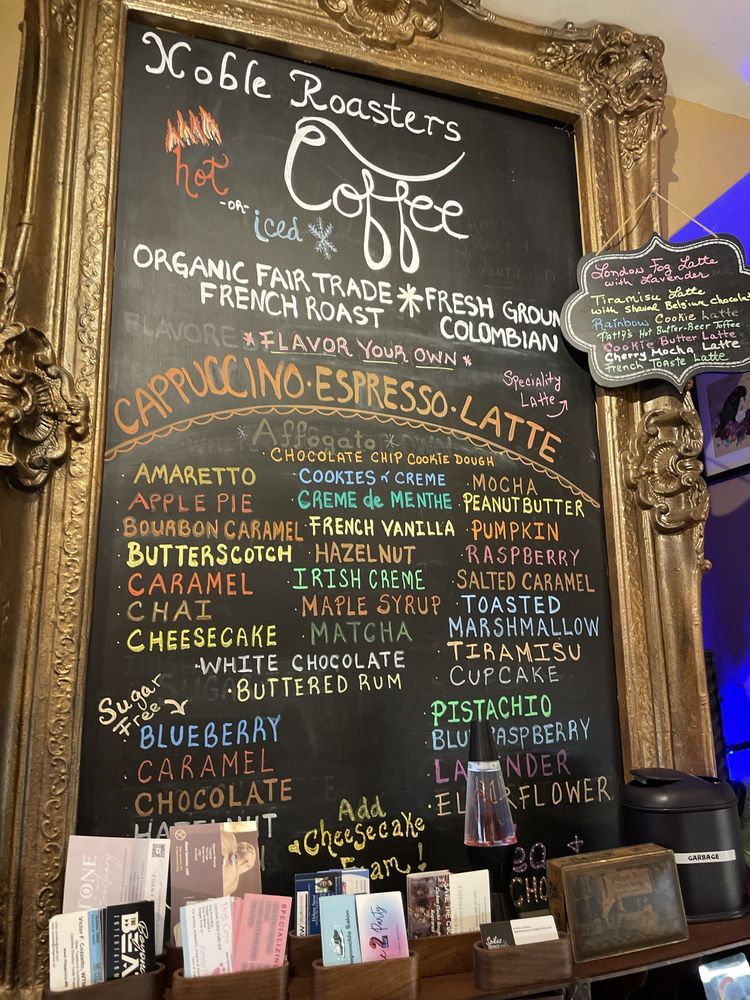 Noble Roasters
Coffee
hot
-OR-
iced
ORGANIC FAIR TRADE
FRENCH ROAST
FRESH GROUN
COLOMBIAN
*FLAVOR YOUR OWN*
CAPPUCCINO·ESPRESSO·LATTE
Speciality
Latte
*Affogato*
·CHOCOLATE CHIP COOKIE DOUGH
·AMARETTO
·APPLE PIE
·BOURBON CARAMEL
·BUTTERSCOTCH
·CARAMEL
·CHAI
·CHEESECAKE
·COOKIES & CREME
·CREME de MENTHE
·FRENCH VANILLA
·HAZELNUT
·IRISH CREME
·MAPLE SYRUP
·MATCHA
·MOCHA
·PEANUT BUTTER
·PUMPKIN
·RASPBERRY
·SALTED CARAMEL
·TOASTED
MARSHMALLOW
·TIRAMISU
·CUPCAKE
·WHITE CHOCOLATE
·BUTTERED RUM
Sugar
Free
·BLUEBERRY
·CARAMEL
·CHOCOLATE
·HAZELNUT
·PISTACHIO
·BLU RASPBERRY
·LAVENDER
·ELDERFLOWER
Add
Cheesecake
Foam!
London Fog Latte
with Lavender
Tiramisu Latte
with shaved Belgium chocolat
Rainbow Cookie Latte
Patty's Hot Butter-Beer Toffee
Cookie Butter Latte
Cherry Mocha Latte
French Toaste Latte
GARBAGE
TONE
Beyond
BEA
SPECIALIZING
Party